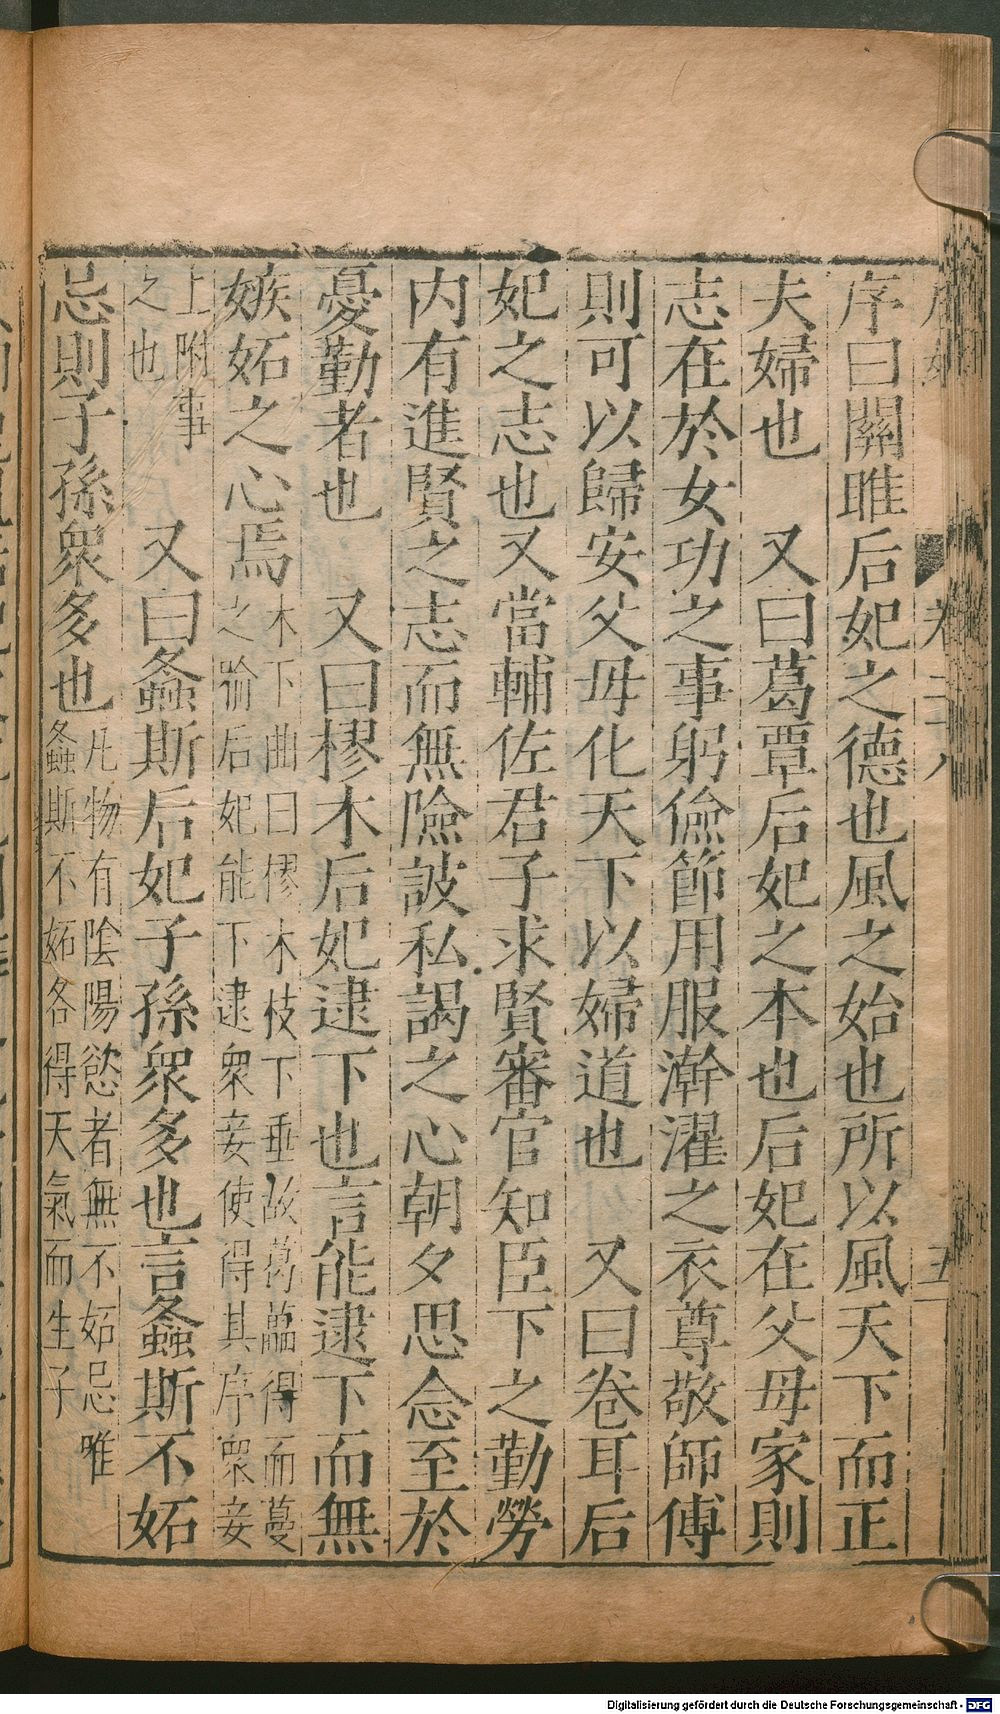 序曰關雎后妃之德也風之始也所以風天下而正
夫婦也　又曰葛覃后妃之本也后妃在父母家則
志在於女功之事躬儉節用服澣濯之衣尊敬師傅
則可以歸安父母化天下以婦道也　又曰卷耳后
妃之志也又當輔佐君子求賢審官知臣下之勤勞
内有進賢之志而無險詖私謁之心朝夕思念至於
憂勤者也　又曰樛木后妃逮下也言能逮下而無
嫉妬之心焉
木下曲曰樛木枝下垂故葛藟得而蔓
之喻后妃能下逮衆妾使得其序衆妾
上附事
之也
又曰螽斯后妃子孫衆多也言螽斯不妬
忌則子孫衆多也
凡物有陰陽慾者無不妬忌唯
螽斯不妬各得天氣而生子
五
Digitalisierung gefördert durch die Deutsche Forschungsgemeinschaft - DFG